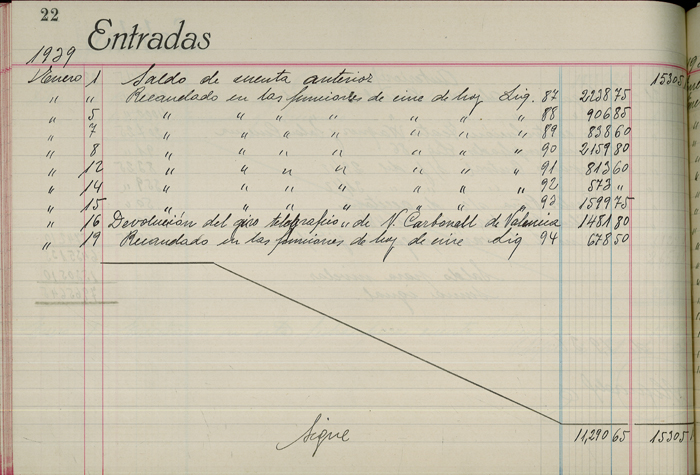 22
Entradas
1939
Enero 1 Saldo de cuenta anterior 15305
" " Recaudado en las funciones de cine de hoy Liq. 87 2238 75
" 5 " " " " " " " 88 906 85
" 7 " " " " " " " 89 838 60
" 8 " " " " " " " 90 2159 80
" 12 " " " " " " " 91 813 60
" 14 " " " " " " " 92 573 "
" 15 " " " " " " " 93 1599 75
" 16 Devolución del giro telegrafico " de V. Carbonell de Valencia 1481 80
" 19 Recaudado en las funciones de hoy de cine Liq 94 678 50
Sigue 11,290 65 15305